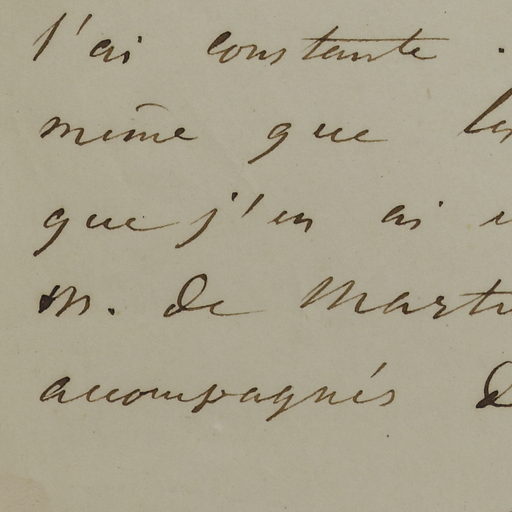 l'ai constante.
même que les
que j'en ai
M. de Marti
accompagnés d